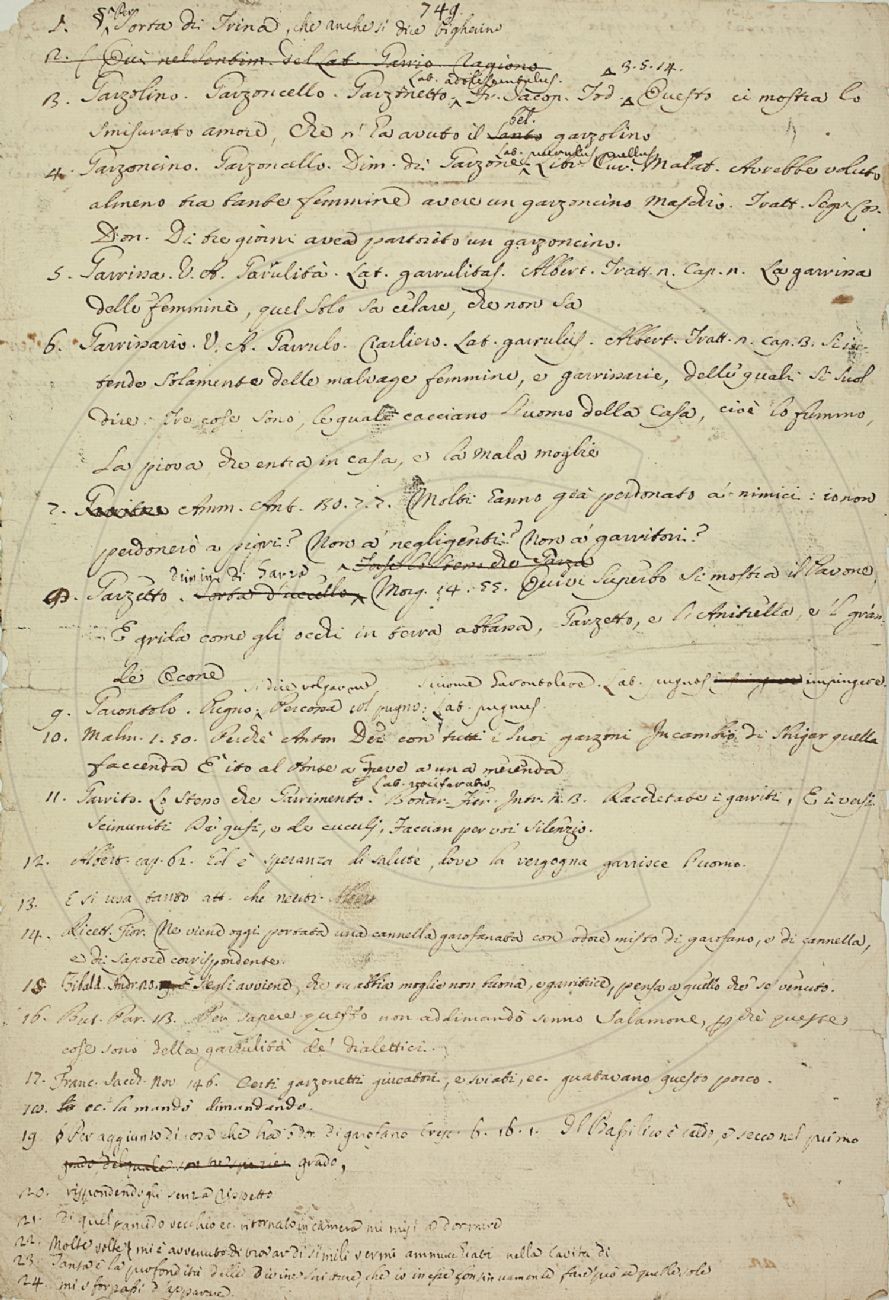 749
1. § Per Sorta di Trina, che anche si dice bigherino
2.
Lat. adolescentulus. 3. 5. 14.
3. Garzolino. Garzoncello. Garzonetto Fr. Jacop. Tod. Questo ci mostra lo
smisurato amore, che n' ha avuto il bel garzolino
4. Garzoncino. Garzoncello. Dim. di Garzone. Lat. puerulus puellus Libr. Cur. Malat. Avrebbe voluto
almeno tra tante femmine avere un garzoncino maschio. Tratt. Segr. Cos.
Don. Di tre giorni avea partorito un garzoncino.
5. Garrina. V. A. Garrulità. Lat. garrulitas. Albert. Tratt. n. Cap. n. La garrina
delle femmine, quel solo sa celare, che non sa
6. Garrinario. V. A. Garrulo. Ciarliero. Lat. garrulus. Albert. Tratt. n. Cap. 13. S' in-
tende solamente delle malvage femmine, e garrinarie, delle quali si suol
dire: Tre cose sono, le quali cacciano l' uomo della Casa, cioè lo fummo,
La piova, che entra in casa, e la mala moglie
7. Amm. Ant. Molti hanno già perdonato a' nimici: io non
perdonerò a pigri? Non a' negligenti? Non a' garritori?
8. Garzetto. Dimin. di Garzo Morg. 14. 55. Quivi superbo si mostra il Pavone,
E grida come gli occhi in terra abbassa, Garzetto, e l' Anitrella, e 'l gran-
de Ocone
si dice volgarmente siccome Lat. pugnus impingere
9. Garontolo. Pugno; Percossa col pugno; Lat. pugnus.
10. Malm. 1. 50. Perchè Anton Dei con tutti i suoi garzoni In cambio di sbrigar quella
faccenda E' ito al Ponte a Greve a una merenda
11. Garrito. Lo stesso che Garrimento. Lat. vociferatio Buonar. Fier. Intr. Racchetate i garriti, E i versi
Scimuniti De' gufi, e de' cuculj, Taccian per voi silenzio.
12. Albert. cap. 62. Ed è speranza di salute, dove la vergogna garrisce l' uomo.
13. E si usa tanto att. che neutr.
14. Ricett. Fior. Ne viene oggi portata una cannella garofanata con odore misto di garofano, e di cannella,
e di sapore corrispondente.
15 Tibald. Andr. S' egli avviene, che tu abbia moglie non buona, e garritrice, pensa a quello che se' venuto.
16. But. Par. 13. Per sapere questo non addimandò senno Salamone, che queste
cose sono della garrulità de' dialettici.
17. Franc. Sacch. Nov 146. Certi garzonetti giucatori, e sviati, ec. guatavano questo porco.
18. ec. la mandò dimandando.
19 § Per aggiunto di cosa che ha odor di garofano Cresc. 6. 16. 1. Il Basilico è caldo, e secco nel primo
grado,
20. rispondendogli senza rispetto
21. Di quel tamedo vecchio ec. ritornato in camera mi misi a dormire
22. Molte volte mi è avvenuto di trovar di simili vermi ammucchiati nella cavità di
23. Tanta è la profondità delle Divine Scritture, che io in esse continuamente
24. mi sforzassi d' apparare